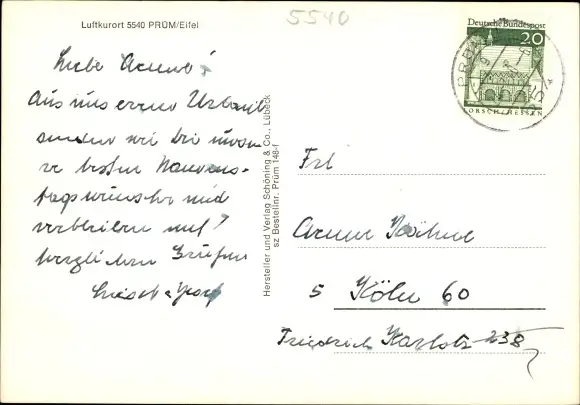 Luftkurort 5540 PRÜM/Eifel
5540
Deutsche Bundespost
20
LORSCH/HESSEN
Liebe
Aus unserem Urlaub
senden wir dir unse-
re besten Namens-
tagswünsche und
verbleiben mit
herzlichen Grüßen
Hersteller und Verlag Schöning & Co., Lübeck
sz Bestellnr. Prüm 148-f
Frl
5 Köln 60
Friedrich Karlstr 238